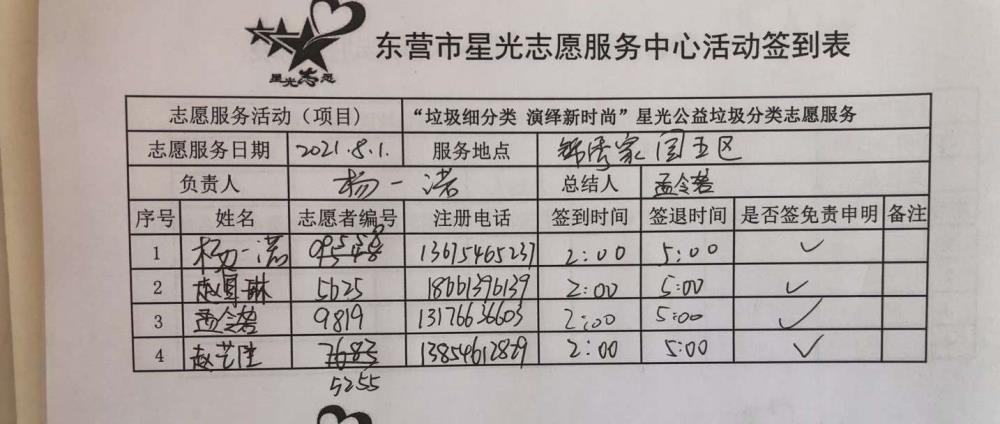 星光志愿
东营市星光志愿服务中心活动签到表
志愿服务活动（项目） “垃圾细分类 演绎新时尚”星光公益垃圾分类志愿服务
志愿服务日期 2021.8.1. 服务地点 锦秀家园五区
负责人 杨一诺 总结人 孟令
序号 姓名 志愿者编号 注册电话 签到时间 签退时间 是否签免责申明 备注
1 杨一诺 13675465237 2:00 5:00 ✓
2 赵 琳 5625 18661396139 2:00 5:00 ✓
3 孟令 9819 13176636603 2:00 5:00 ✓
4 赵艺胜 7683 13854612889 2:00 5:00 ✓
5255